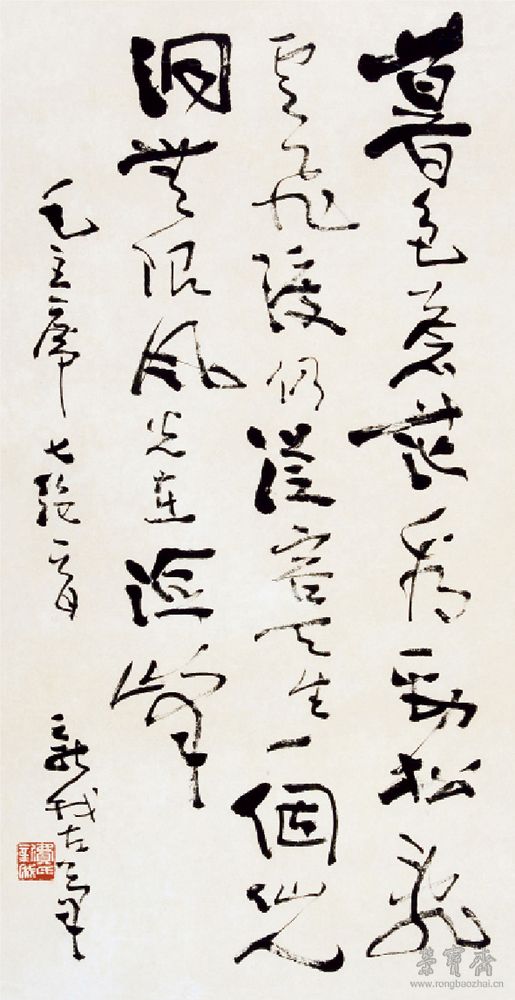 暮色蒼茫看勁松亂
雲飛渡仍從容天生一個仙
洞無限風光在險峰
毛主席七絕一首
新我左筆
費氏新我
榮寶齋
www.rongbaozhai.cn